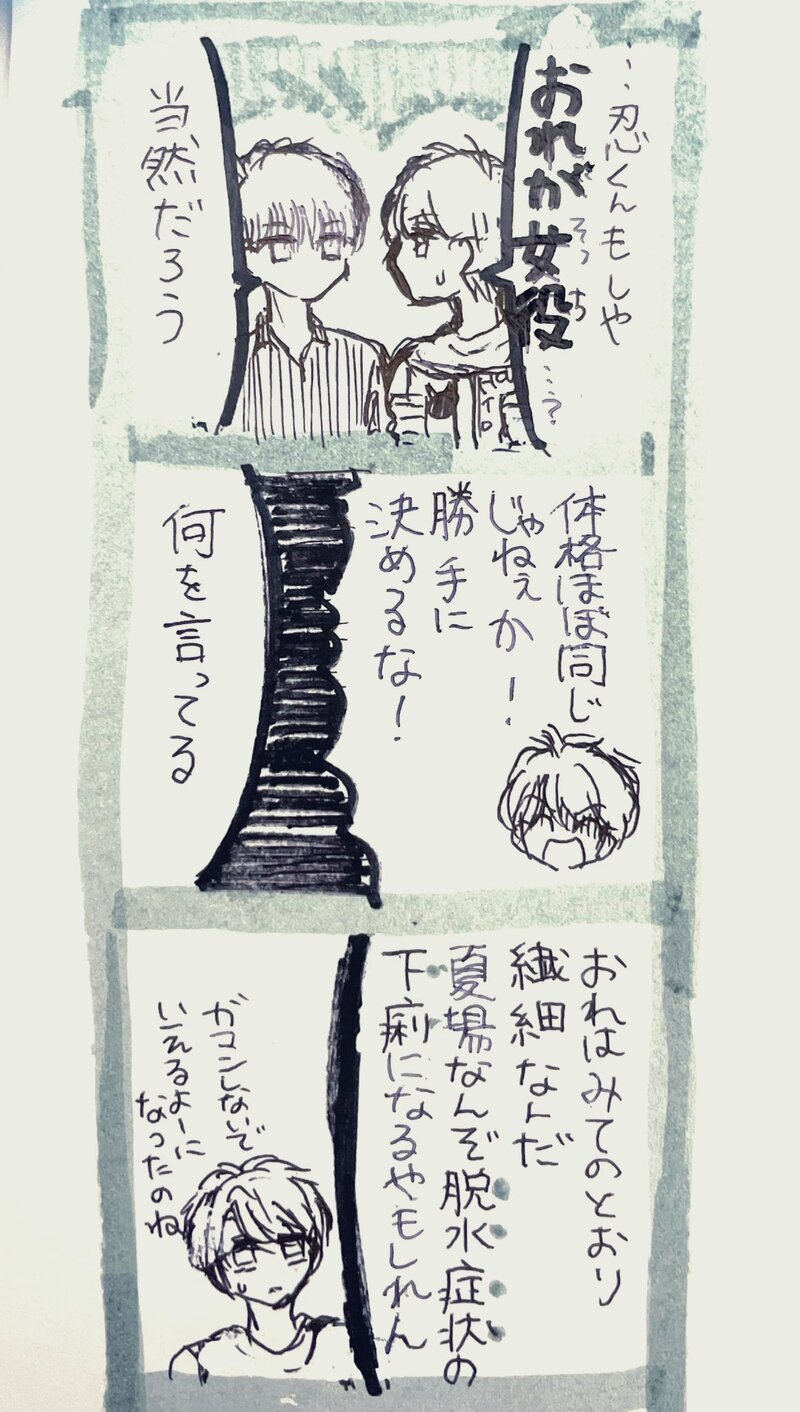 ‥忍くんもしや
おれが女役
そっち
…?
当然だろう
体格ほぼ同じ
じゃねぇか!
勝手に
決めるな!
何を言ってる
おれはみてのとおり
繊細なんだ
夏場なんぞ脱水症状の
下痢になるやもしれん
ガマンしないで
いえるよーに
なったのね